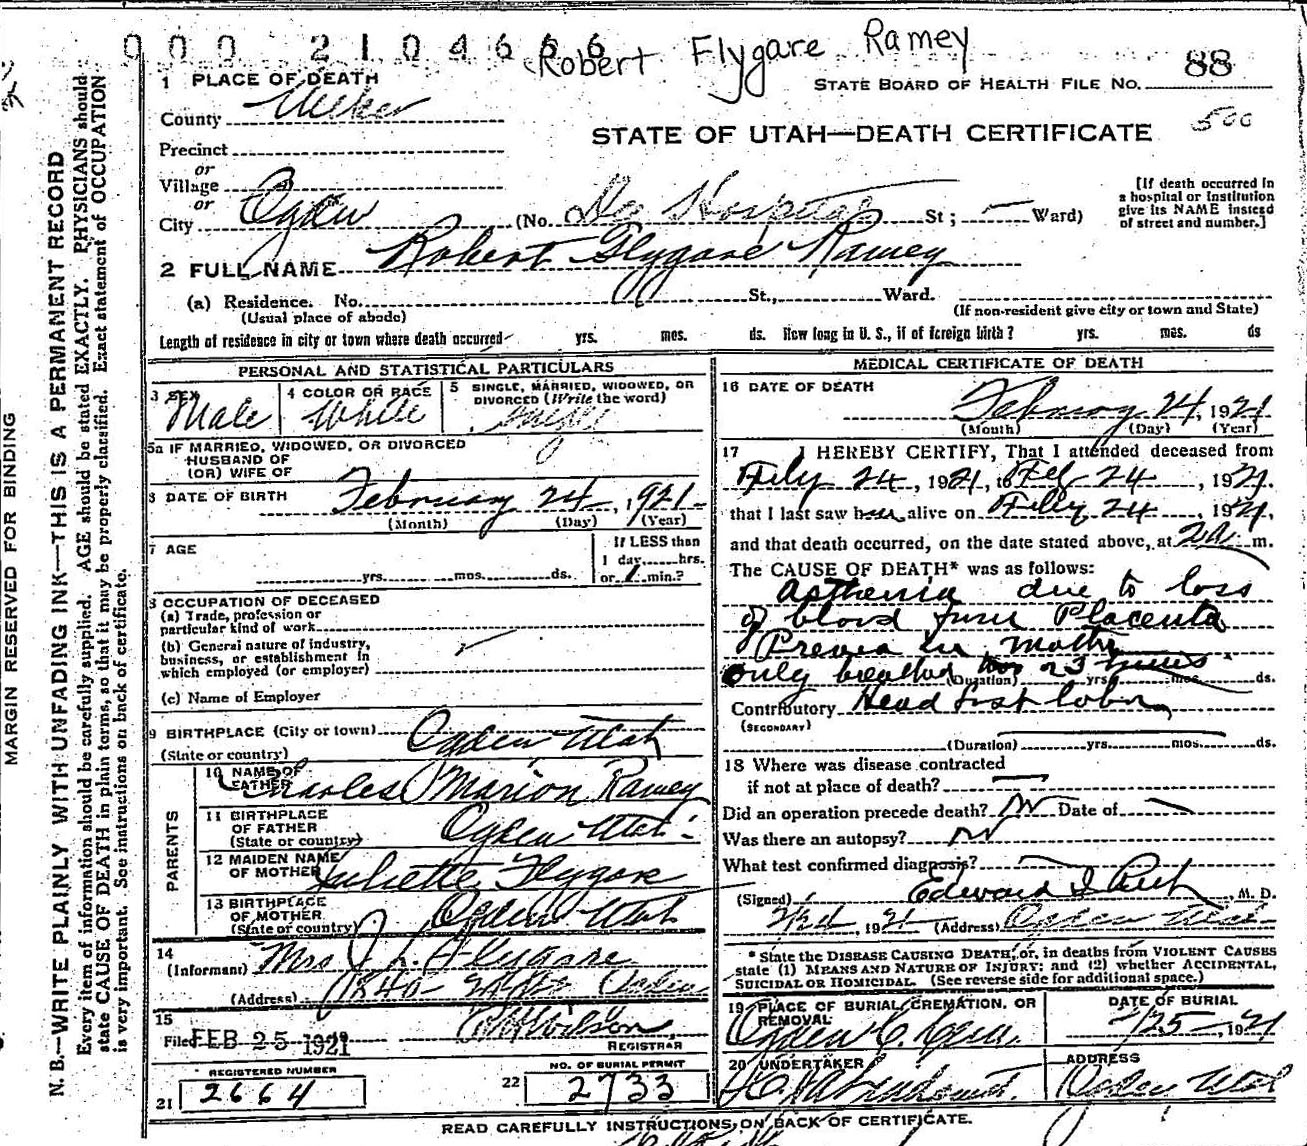 0 0 0 2 1 0 4 6 6 6
Robert Flygare Ramey
1 PLACE OF DEATH
STATE BOARD OF HEALTH FILE No. 88
County Weber
STATE OF UTAH—DEATH CERTIFICATE
500
Precinct
or
Village
or
City Ogden (No. Dee Hospital St; — Ward)
[If death occurred in
a hospital or Institution
give its NAME instead
of street and number.]
2 FULL NAME Robert Flygare Ramey
(a) Residence. No. St., Ward.
(Usual place of abode)
(If non-resident give city or town and State)
Length of residence in city or town where death occurred yrs. mos. ds. How long in U. S., if of foreign birth? yrs. mos. ds
PERSONAL AND STATISTICAL PARTICULARS
3 SEX
Male
4 COLOR OR RACE
White
5 SINGLE, MARRIED, WIDOWED, OR
DIVORCED (Write the word)
Single
5a IF MARRIED, WIDOWED, OR DIVORCED
HUSBAND OF
(OR) WIFE OF
6 DATE OF BIRTH February 24, 1921
(Month) (Day) (Year)
7 AGE
yrs. mos. ds.
If LESS than
1 day hrs.
or 1 min.?
8 OCCUPATION OF DECEASED
(a) Trade, profession or
particular kind of work
(b) General nature of industry,
business, or establishment in
which employed (or employer)
(c) Name of Employer
9 BIRTHPLACE (City or town) Ogden, Utah
(State or country)
PARENTS
10 NAME OF
FATHER Charles Marion Ramey
11 BIRTHPLACE
OF FATHER
(State or country) Ogden Utah
12 MAIDEN NAME
OF MOTHER Juliette Flygare
13 BIRTHPLACE
OF MOTHER
(State or country) Ogden Utah
14
(Informant) Mrs J. L. Flygare
(Address) Ogden
15
Filed FEB 25 1921 Wilson
REGISTRAR
REGISTERED NUMBER
21 2664
NO. OF BURIAL PERMIT
22 2733
MEDICAL CERTIFICATE OF DEATH
16 DATE OF DEATH
February 24, 1921
(Month) (Day) (Year)
17 I HEREBY CERTIFY, That I attended deceased from
Feby 24, 1921, to Feb 24, 1921.
that I last saw h alive on Feby 24, 1921,
and that death occurred, on the date stated above, at m.
The CAUSE OF DEATH* was as follows:
Asthenia due to loss
of blood from Placenta
Previa in mother
only breathed two or 3 times
(Duration) yrs. mos. ds.
Contributory Head first labor
(SECONDARY)
(Duration) yrs. mos. ds.
18 Where was disease contracted
if not at place of death?
Did an operation precede death? No Date of
Was there an autopsy? No
What test confirmed diagnosis?
(Signed) Edward I Rich M. D.
2/24, 1921 (Address) Ogden Utah
* State the DISEASE CAUSING DEATH, or, in deaths from VIOLENT CAUSES
state (1) MEANS AND NATURE OF INJURY; and (2) whether ACCIDENTAL,
SUICIDAL OR HOMICIDAL. (See reverse side for additional space.)
19 PLACE OF BURIAL, CREMATION, OR
REMOVAL
Ogden C. Cem.
DATE OF BURIAL
2/25, 1921
20 UNDERTAKER
ADDRESS
Ogden Utah
READ CAREFULLY INSTRUCTIONS ON BACK OF CERTIFICATE.
MARGIN RESERVED FOR BINDING
N. B.—WRITE PLAINLY WITH UNFADING INK—THIS IS A PERMANENT RECORD
Every item of information should be carefully supplied. AGE should be stated EXACTLY. PHYSICIANS should
state CAUSE OF DEATH in plain terms, so that it may be properly classified. Exact statement of OCCUPATION
is very important. See instructions on back of certificate.